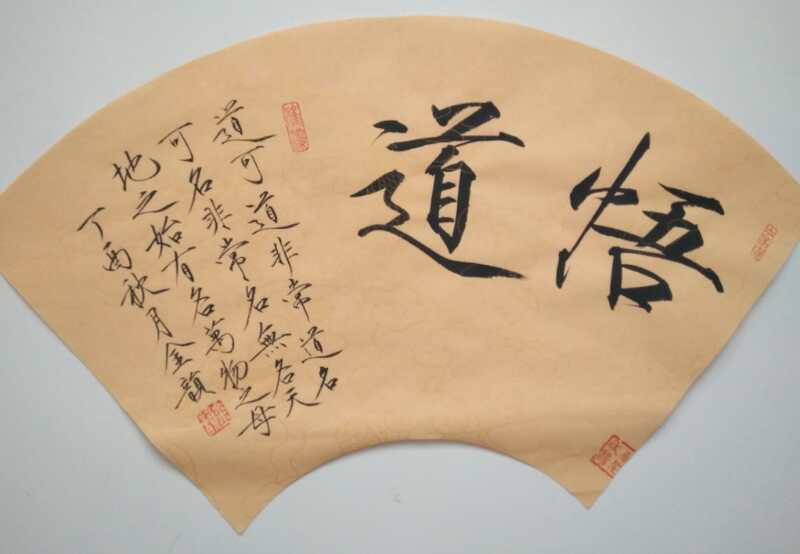 悟道
道可道非常道名
可名非常名無名天
地之始有名萬物之母
丁酉秋月金韻